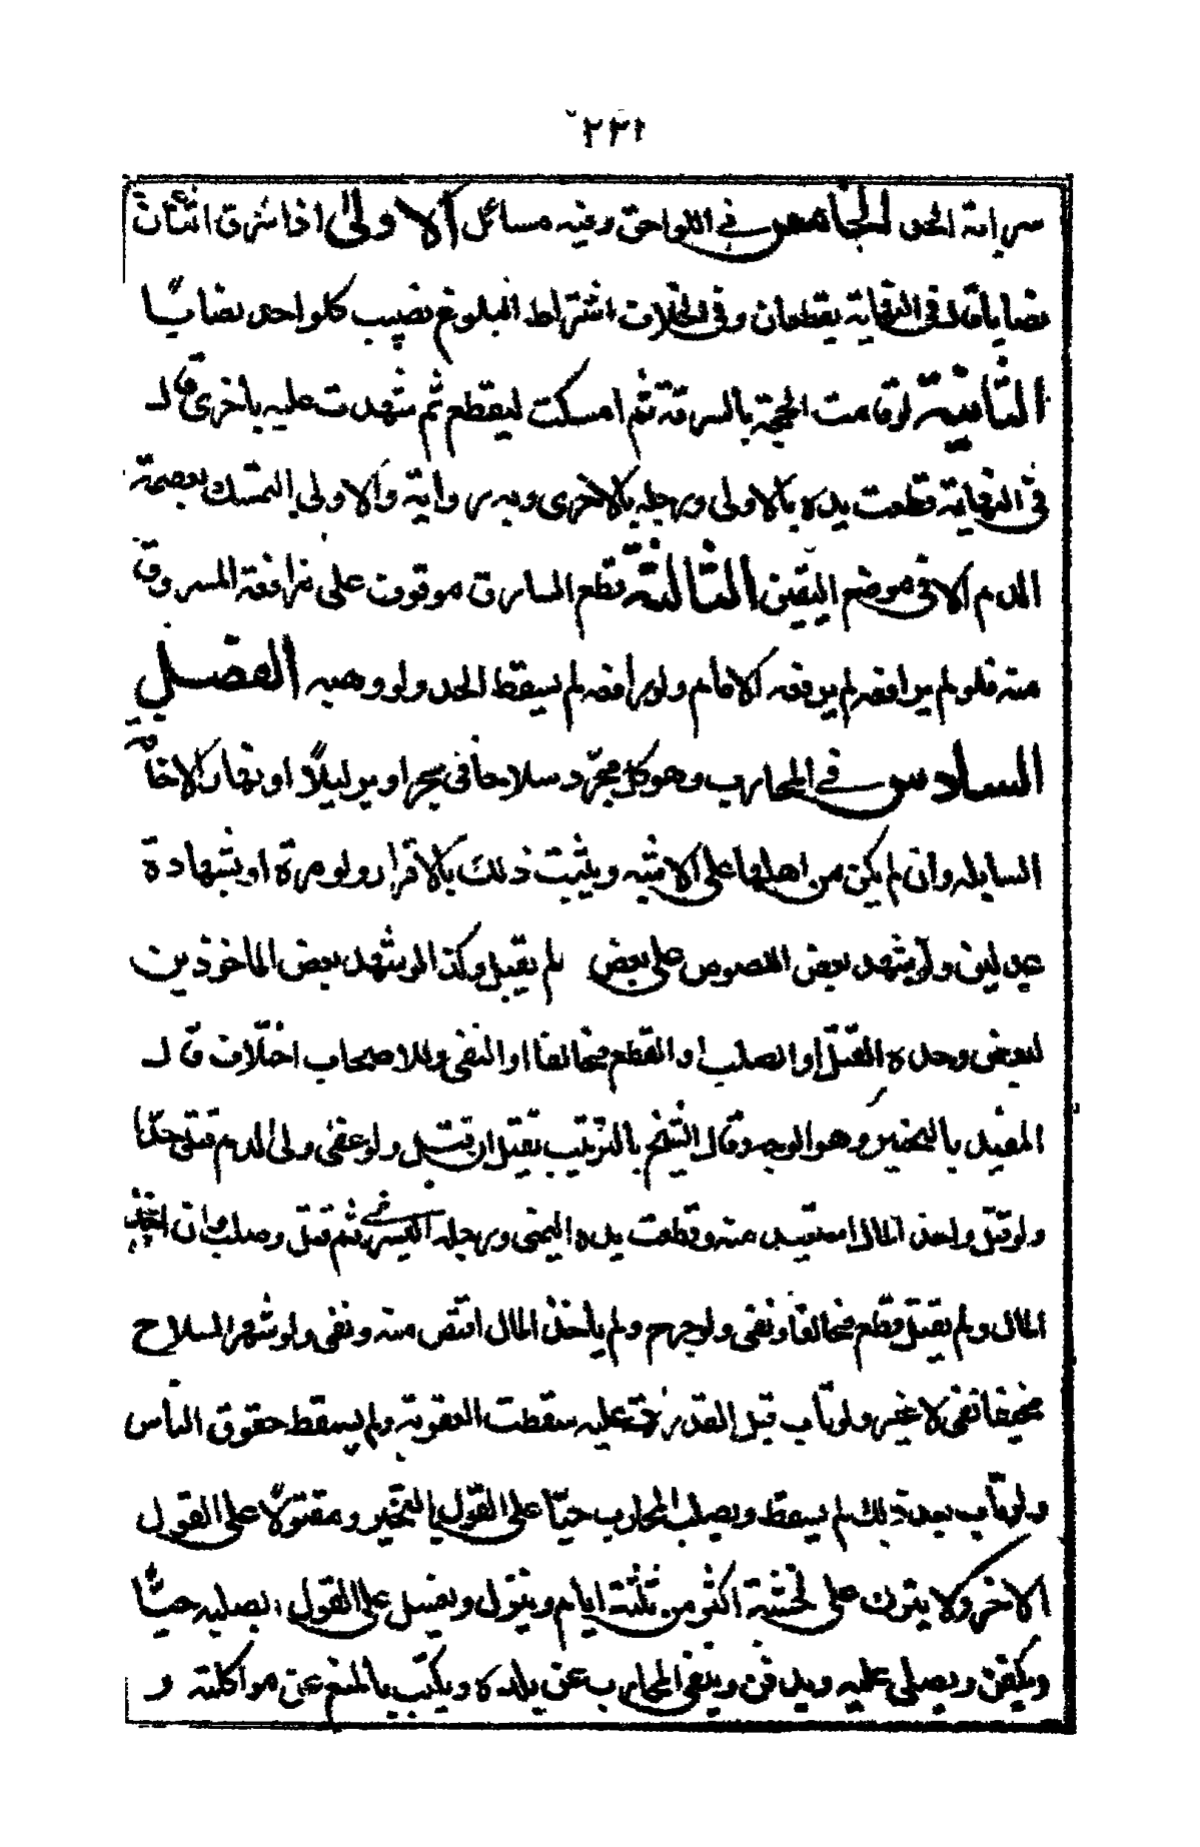 ٢٢١
سراية الحد الخامس في اللواحق وفيه مسائل الاولى اذا سرق اثنان
نصابا قال في النهاية يقطعان وفي الخلاف اشتراط البلوغ نصيب كل واحد نصابا
الثانية لو قامت الحجة بالسرقة ثم امسكت ليقطع ثم شهدت عليه باخرى قال
في النهاية قطعت يده بالاولى ورجله بالاخرى وبه رواية والاولى التمسك بعصمة
الدم الا في موضع اليقين الثالثة قطع السارق موقوف على مرافعة المسروق
منه فلو لم يرافعه لم يرفعه الامام ولو رافعه لم يسقط الحد ولو وهبه الفصل
السادس في المحارب وهو كل مجرد سلاحا في بحر او بر ليلا او نهارا لاخافة
السابلة وان لم يكن من اهلها على الاشبه ويثبت ذلك بالاقرار ولو مرة او بشهادة
عدلين ولو شهد بعض اللصوص على بعض لم يقبل وكذا لو شهد بعض الماخوذين
لبعض وحده القتل او الصلب او القطع مخالفا او النفي وللاصحاب اختلاف قال
المفيد بالتخيير وهو الوجه وقال الشيخ بالترتيب يقتل ان قتل ولو عفى ولي الدم قتل حدا
ولو قتل واخذ المال استعيد منه وقطعت يده اليمنى ورجله اليسرى ثم قتل وصلب وان اخذ
المال ولم يقتل قطع مخالفا ونفى ولو جرح ولم ياخذ المال اقتص منه ونفى ولو شهر السلاح
مخيفا نفى لا غير ولو تاب قبل القدرة عليه سقطت العقوبة ولم يسقط حقوق الناس
ولو تاب بعد ذلك لم يسقط ويصلب المحارب حيا على القول بالتخيير ومقتولا على القول
الاخر ولا يترك على خشبته اكثر من ثلثة ايام وينزل ويغسل على القول بصلبه حيا
ويكفن ويصلى عليه ويدفن وينفى المحارب عن بلده ويكتب بالمنع عن مواكلته و